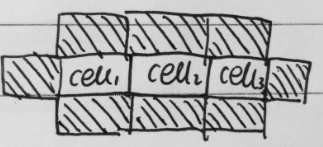 cell₁ cell₂ cell₃